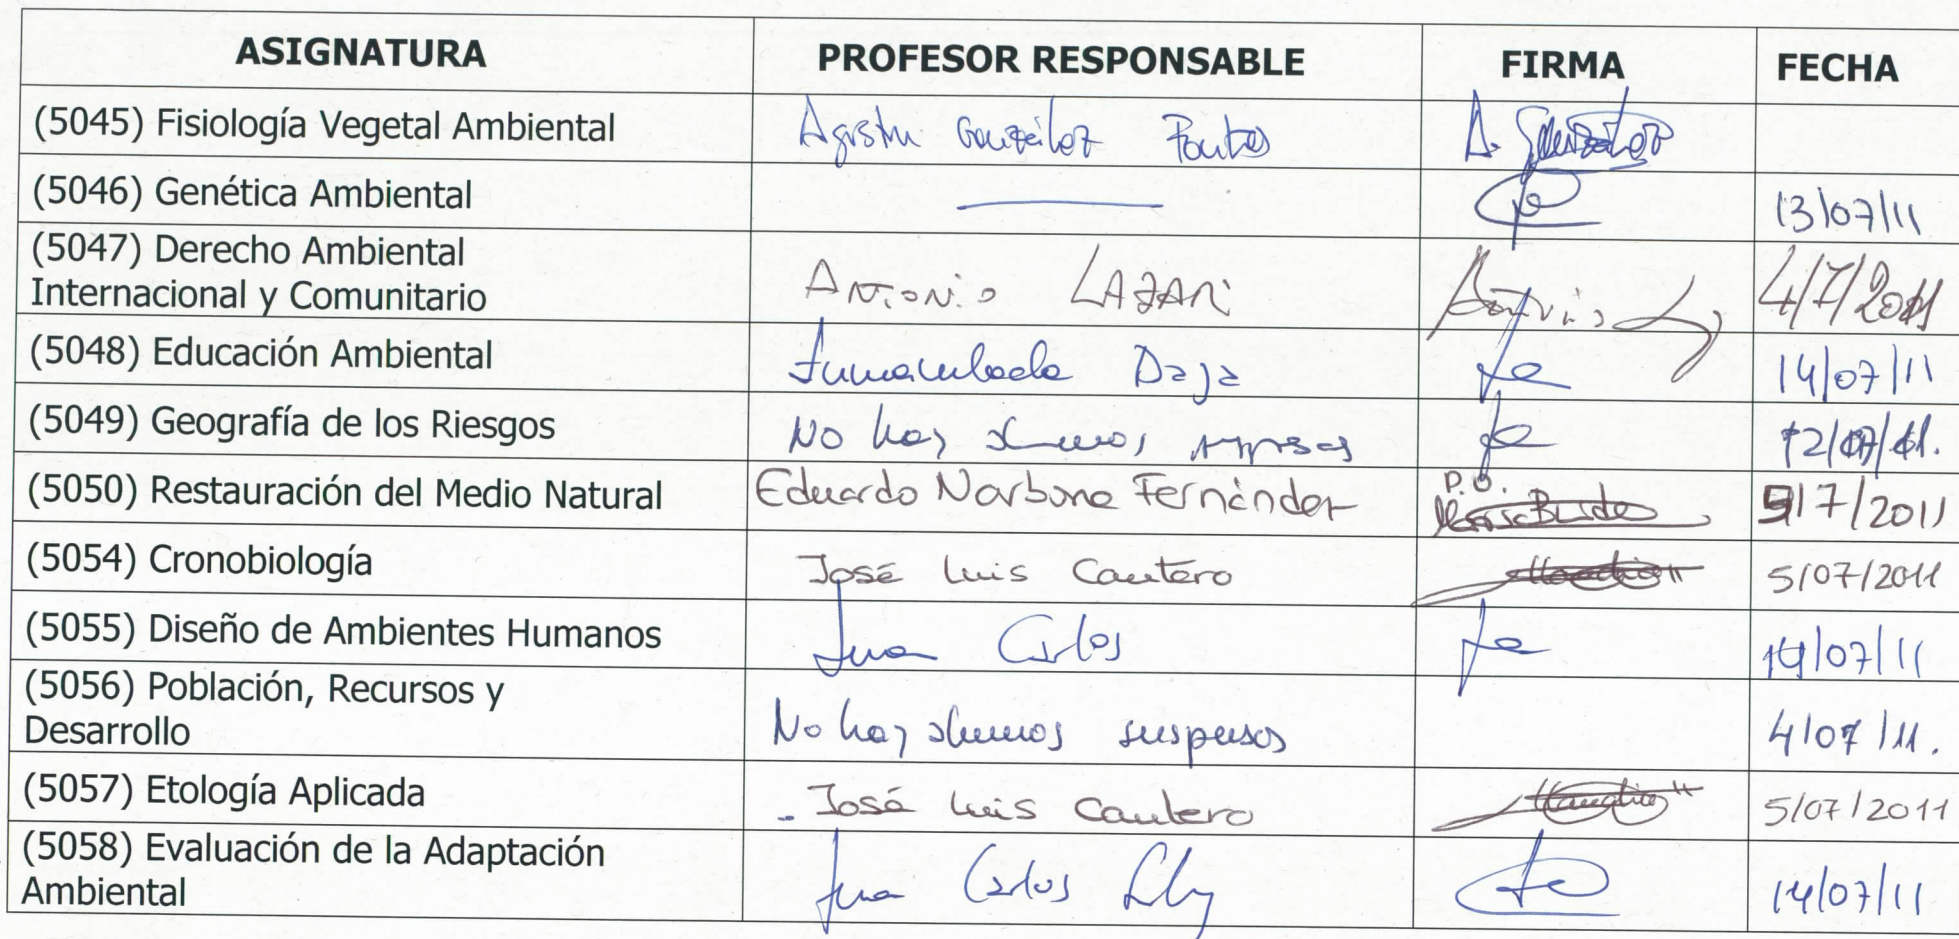 ASIGNATURA PROFESOR RESPONSABLE FIRMA FECHA
(5045) Fisiología Vegetal Ambiental Agustín González Fontes A. González
(5046) Genética Ambiental 13/07/11
(5047) Derecho Ambiental
Internacional y Comunitario ANTONIO LAZARI Antonio 4/7/2011
(5048) Educación Ambiental Inmaculada 14/07/11
(5049) Geografía de los Riesgos No hay 12/07/11.
(5050) Restauración del Medio Natural Eduardo Narbona Fernández P.O. 5/7/2011
(5054) Cronobiología José Luis Cantero 5/07/2011
(5055) Diseño de Ambientes Humanos Juan Carlos 14/07/11
(5056) Población, Recursos y
Desarrollo No hay alumnos suspensos 4/07/11.
(5057) Etología Aplicada José Luis Cantero 5/07/2011
(5058) Evaluación de la Adaptación
Ambiental Juan Carlos 14/07/11